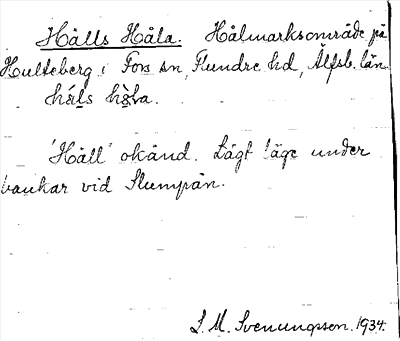 Hålls Håla. Hålmarksområde på
Hulteberg i Fors sn, Flundre hd, Älfsb. län.
'Håll' okänd. Lågt läge under
bankar vid Slumpån.
S. M. Svenungsson. 1934.